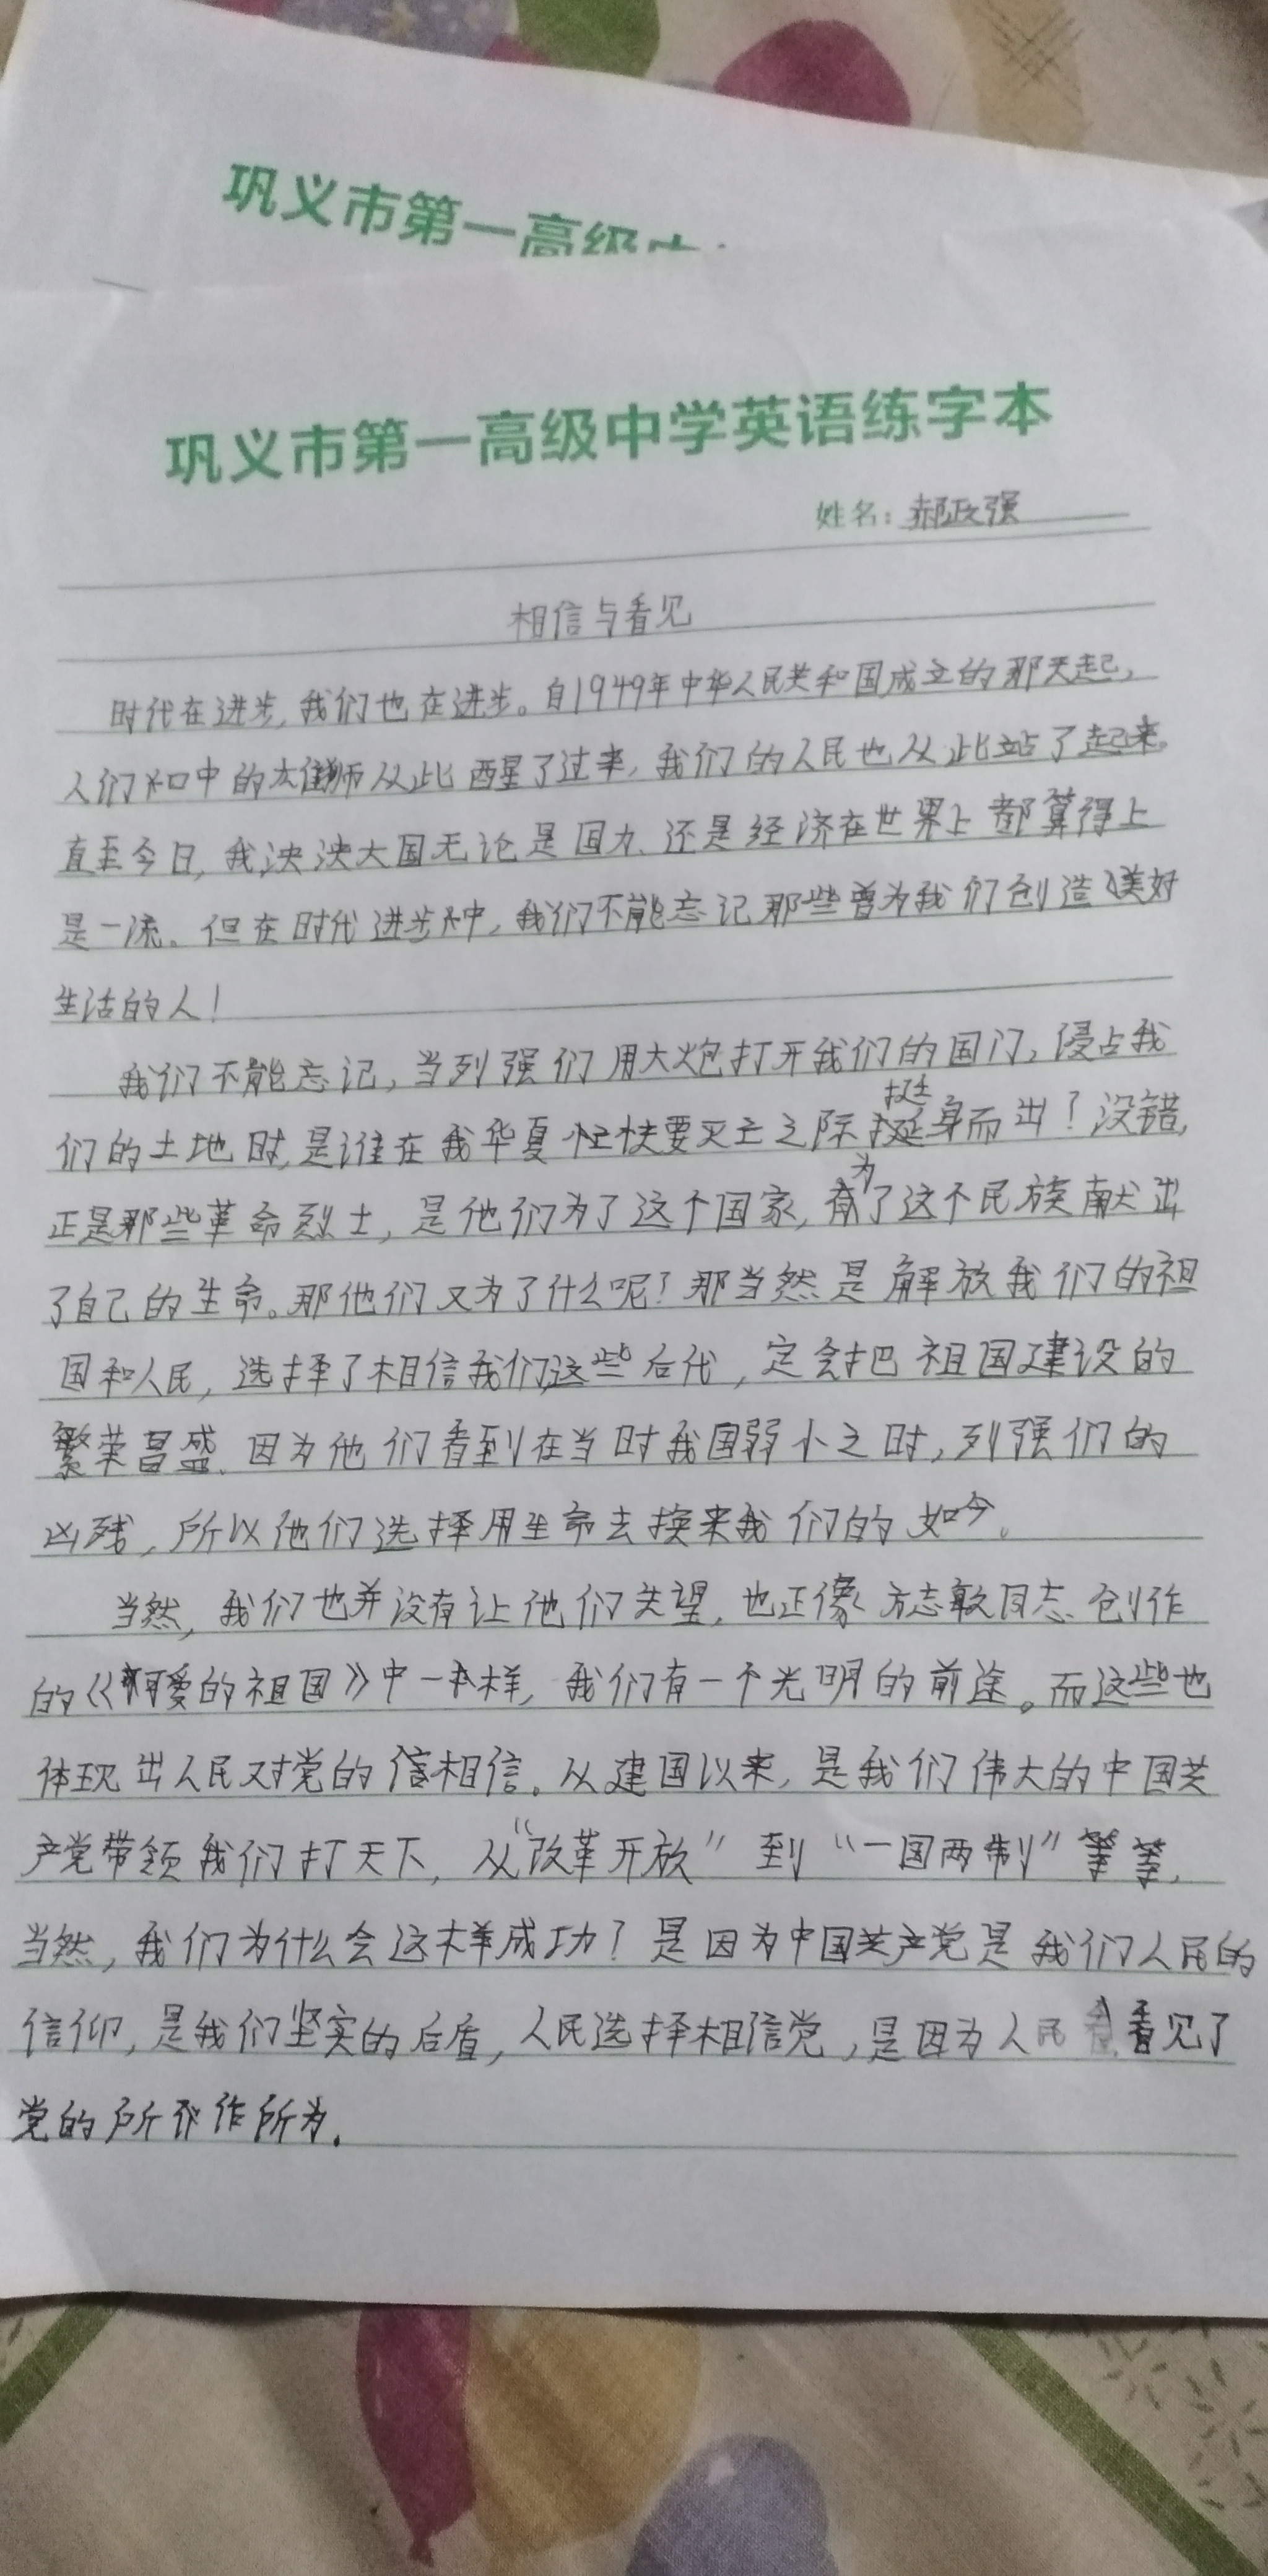 巩义市第一高级
巩义市第一高级中学英语练字本
姓名：郝政强
相信与看见
时代在进步，我们也在进步。自1949年中华人民共和国成立的那天起，
人们口中的从此醒了过来，我们的人民也从此站了起来。
直至今日，我泱泱大国无论是国力、还是经济在世界上都算得上
是一流。但在时代进步中，我们不能忘记那些曾为我们创造美好
生活的人！
我们不能忘记，当列强们用大炮打开我们的国门，侵占我
们的土地时，是谁在我华夏快要灭亡之际挺身而出？没错，
正是那些革命烈士，是他们为了这个国家，为了这个民族献出
了自己的生命。那他们又为了什么呢？那当然是解放我们的祖
国和人民，选择了相信我们这些后代，定会把祖国建设的
繁荣昌盛。因为他们看到在当时我国弱小之时，列强们的
凶残，所以他们选择用生命去换来我们的如今。
当然，我们也并没有让他们失望，也正像方志敏同志创作
的《可爱的祖国》中一样，我们有一个光明的前途。而这些也
体现出人民对党的相信。从建国以来，是我们伟大的中国共
产党带领我们打天下，从“改革开放”到“一国两制”等等，
当然，我们为什么会这样成功？是因为中国共产党是我们人民的
信仰，是我们坚实的后盾，人民选择相信党，是因为人民看见了
党的所作所为。